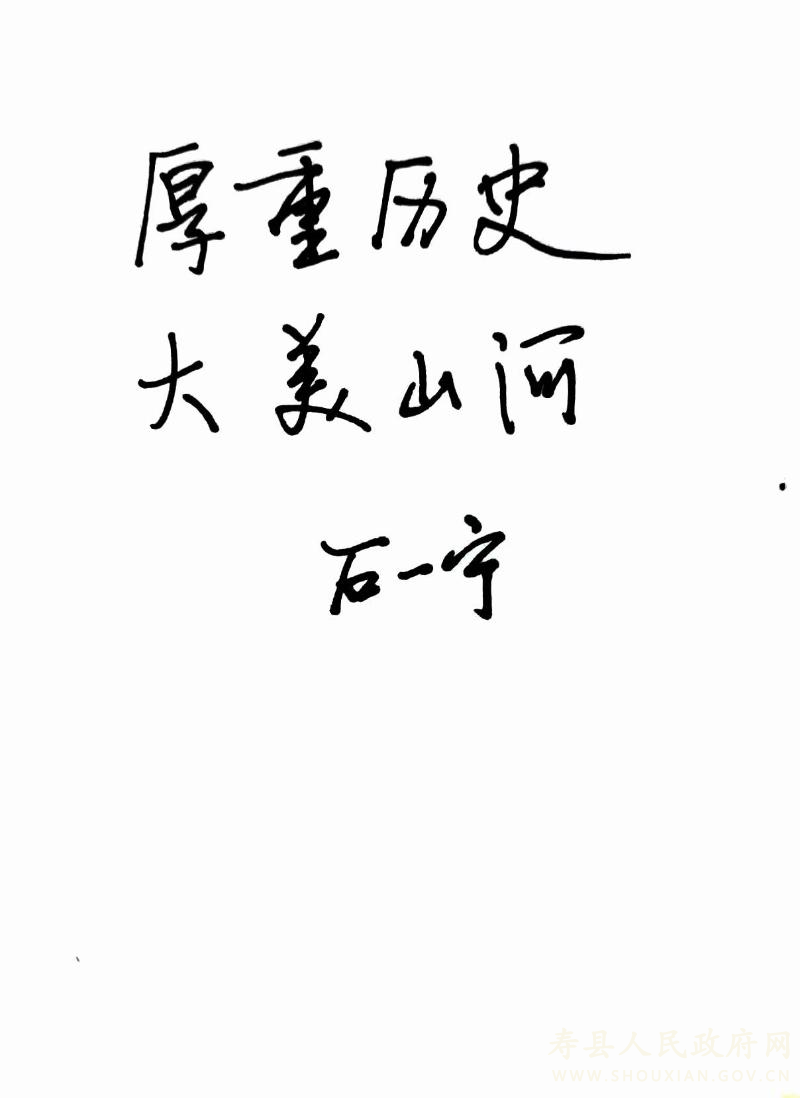 厚重历史
大美山河
石一宁
寿县人民政府网
WWW.SHOUXIAN.GOV.CN